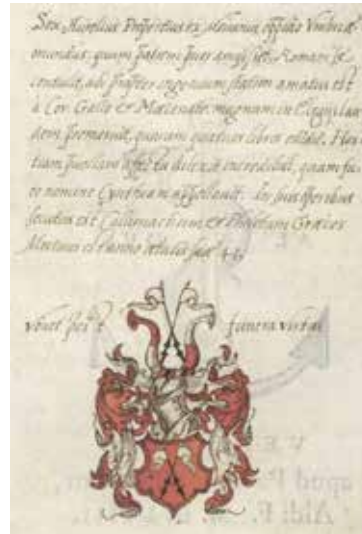 Sex. Aurelius Propertius ex Mevania oppido Umbriæ
oriundus, quum patriam puer amisisset, Romam se
contulit, ubi propter ingenium statim amatus est
à Cor. Gallo et Mæcenate. magnam in Elegijs lau
dem promeruit, quarum quatuor libros edidit.
tiam puellam dilexit incredibil. quam fic
to nomine Cynthiam appellavit. In suis operibus
secutus est Callimachum et Philetam Græcos
Mortuus est anno ætatis suæ 41.
vivit post funera virtus
VE
apud P
Aldi F.